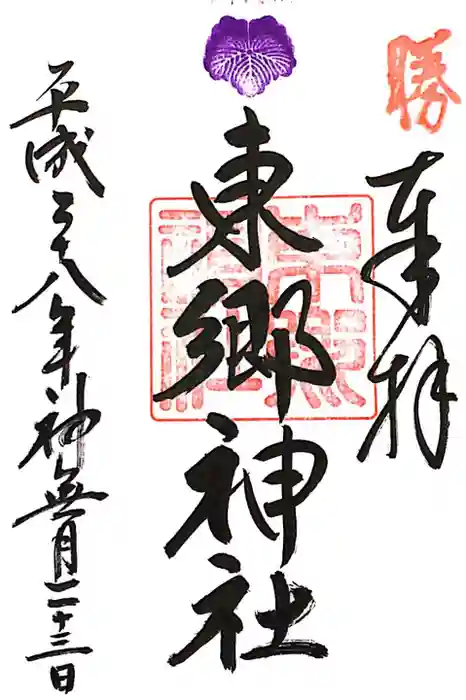 勝
奉拝
東郷神社
東郷神社
平成二十八年神無月二十三日